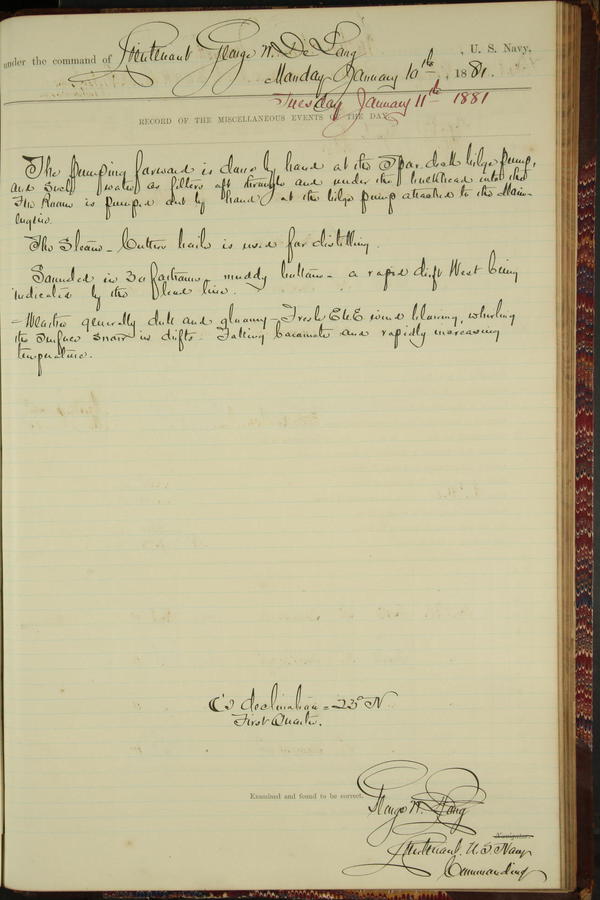 under the command of Lieutenant George W. De Long , U. S. Navy,
Monday January 10th , 1881.
Tuesday January 11th 1881
RECORD OF THE MISCELLANEOUS EVENTS OF THE DAY.
The pumping forward is done by hand at the Spar deck bilge pump,
and such water as filters aft through and under the bulkhead into the
Fire Room is pumped out by hand at the bilge pump attached to the Main
engine.
The Steam-Cutter boiler is used for distilling.
Sounded in 32 fathoms - muddy bottom - a rapid drift West being
indicated by the lead line.
Weather generally dull and gloomy - Fresh ESE wind blowing, whirling
the surface snow in drifts. Falling barometer and rapidly increasing
temperature.
☾'s declination = 23° N
First Quarter.
Examined and found to be correct.
George W. De Long
Navigator.
Lieutenant. U. S Navy
Commanding